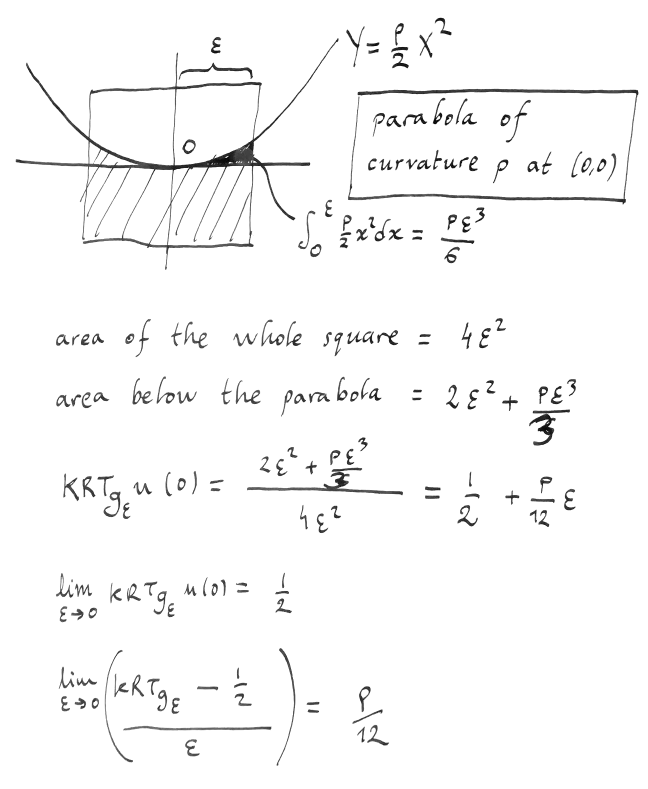 ε
y = ρ/2 x²
O
parabola of
curvature ρ at (0,0)
∫₀^ε ρ/2 x² dx = ρε³/6
area of the whole square = 4ε²
area below the parabola = 2ε² + ρε³/3
KRT_{g_ε} u(0) = (2ε² + ρε³/3)/(4ε²) = 1/2 + ρ/12 ε
lim_{ε→0} KRT_{g_ε} u(0) = 1/2
lim_{ε→0} ((KRT_{g_ε} − 1/2)/ε) = ρ/12